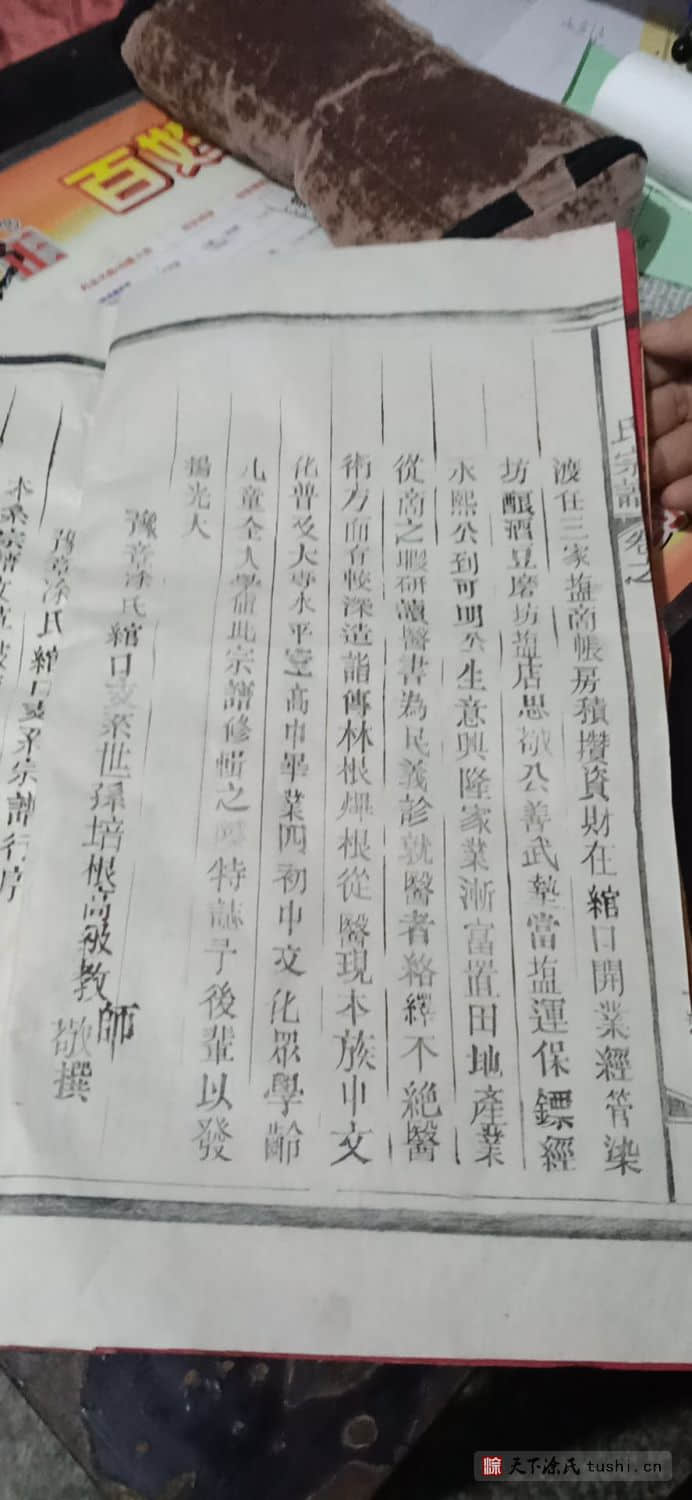 氏宗譜 卷之
渡任三家塩商帳房積攢資財在綰口開業經管染
坊釀酒豆磨坊塩店思敬公善武墊當塩運保鏢經
永熙公到可明公生意興隆家業漸富置田地產業
從商之暇研讀醫書為民義診就醫者絡繹不絕醫
術方面有較深造詣傳林根煇根從醫現本族中文
化普及大專水平壹高中畢業四初中文化眾學齡
儿童全入學值此宗譜修輯之際特誌子後輩以發
揚光大
豫章凃氏綰口支系世孫培根高級教師
敬撰
豫章凃氏綰口支系宗譜行序
本系宗譜
百
天下凃氏 tushi.cn